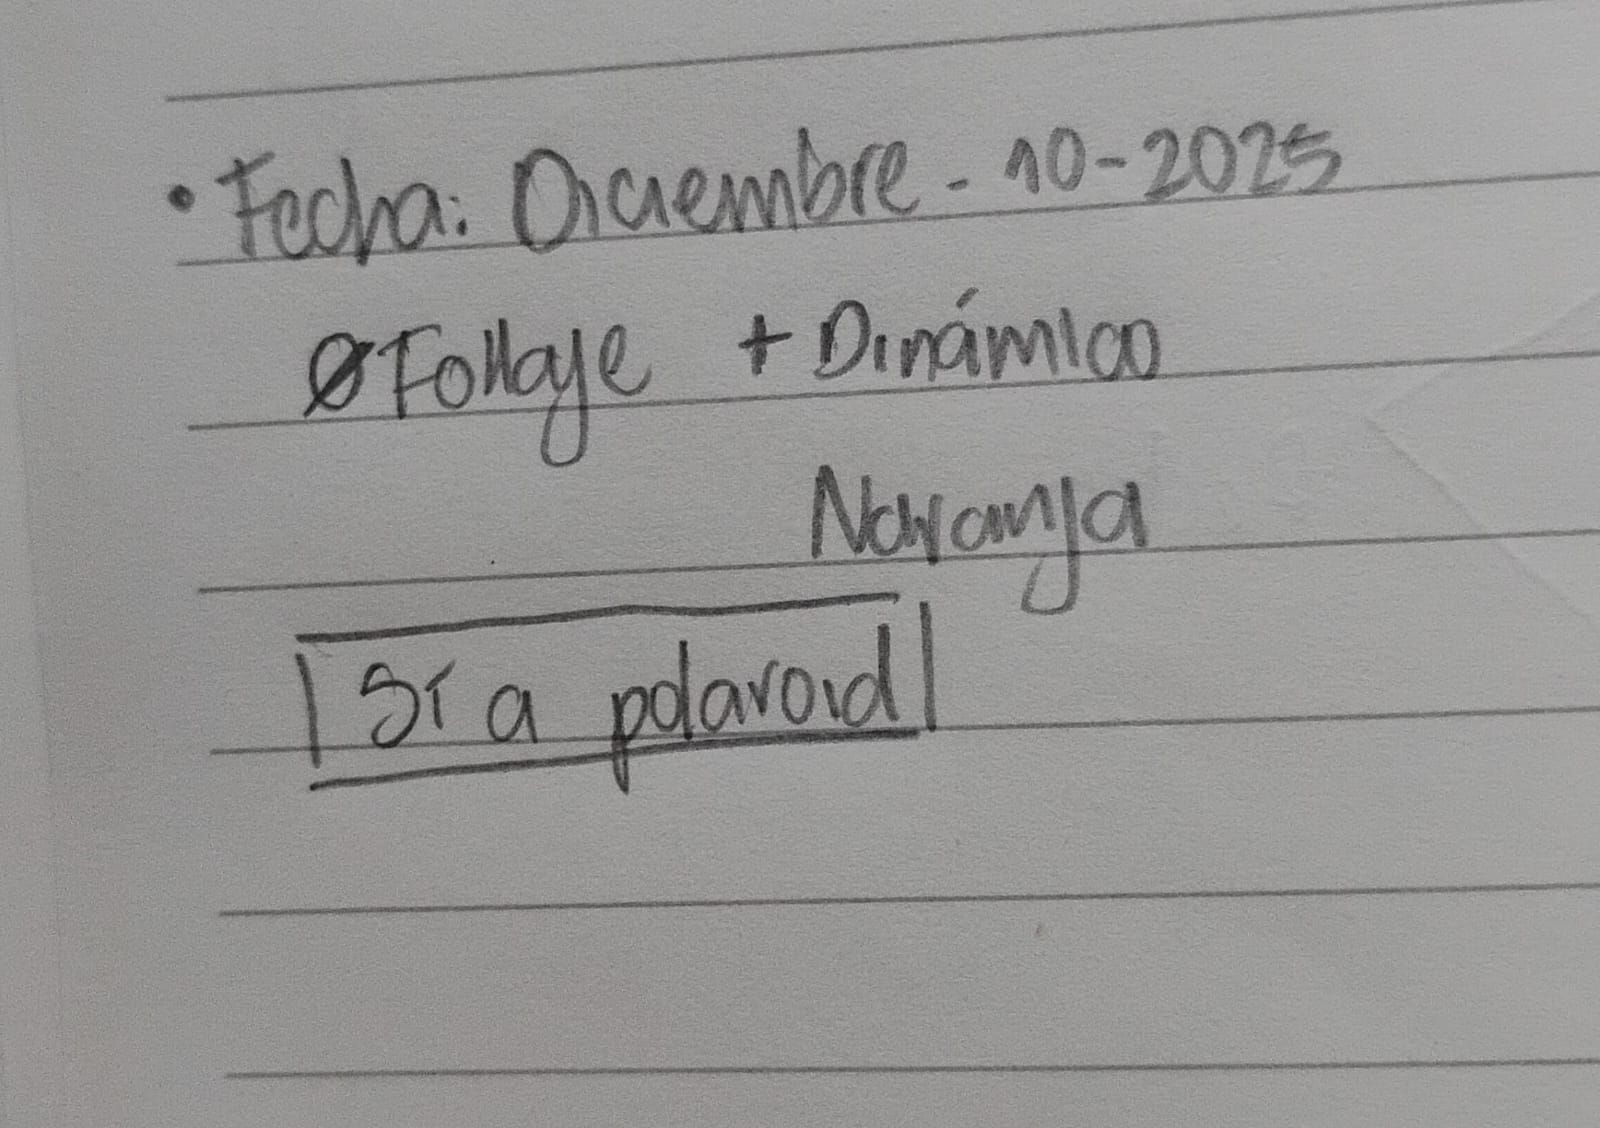 • Fecha: Diciembre - 10-2025
Ø Follaje + Dinámico
Naranja
Sí a polaroid